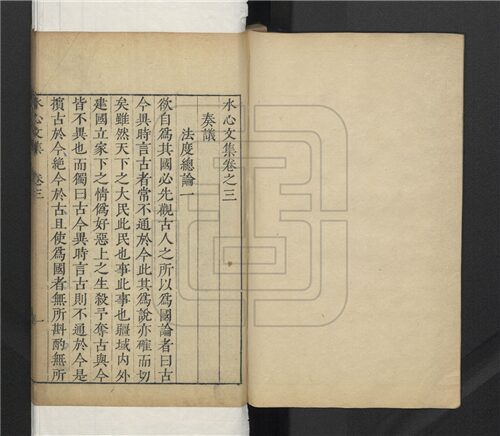 水心文集卷之三
奏議
法度總論一
欲自爲其國必先觀古人之所以爲國論者曰古
今異時言古者常不通於今此其爲說亦確而切
矣雖然天下之大民此民也事此事也疆域內外
建國立家下之情僞好惡上之生殺予奪古與今
皆不異也而獨曰古今異時言古則不通於今是
擯古於今絶今於古且使爲國者無所斟酌無所
水心文集 卷三 一